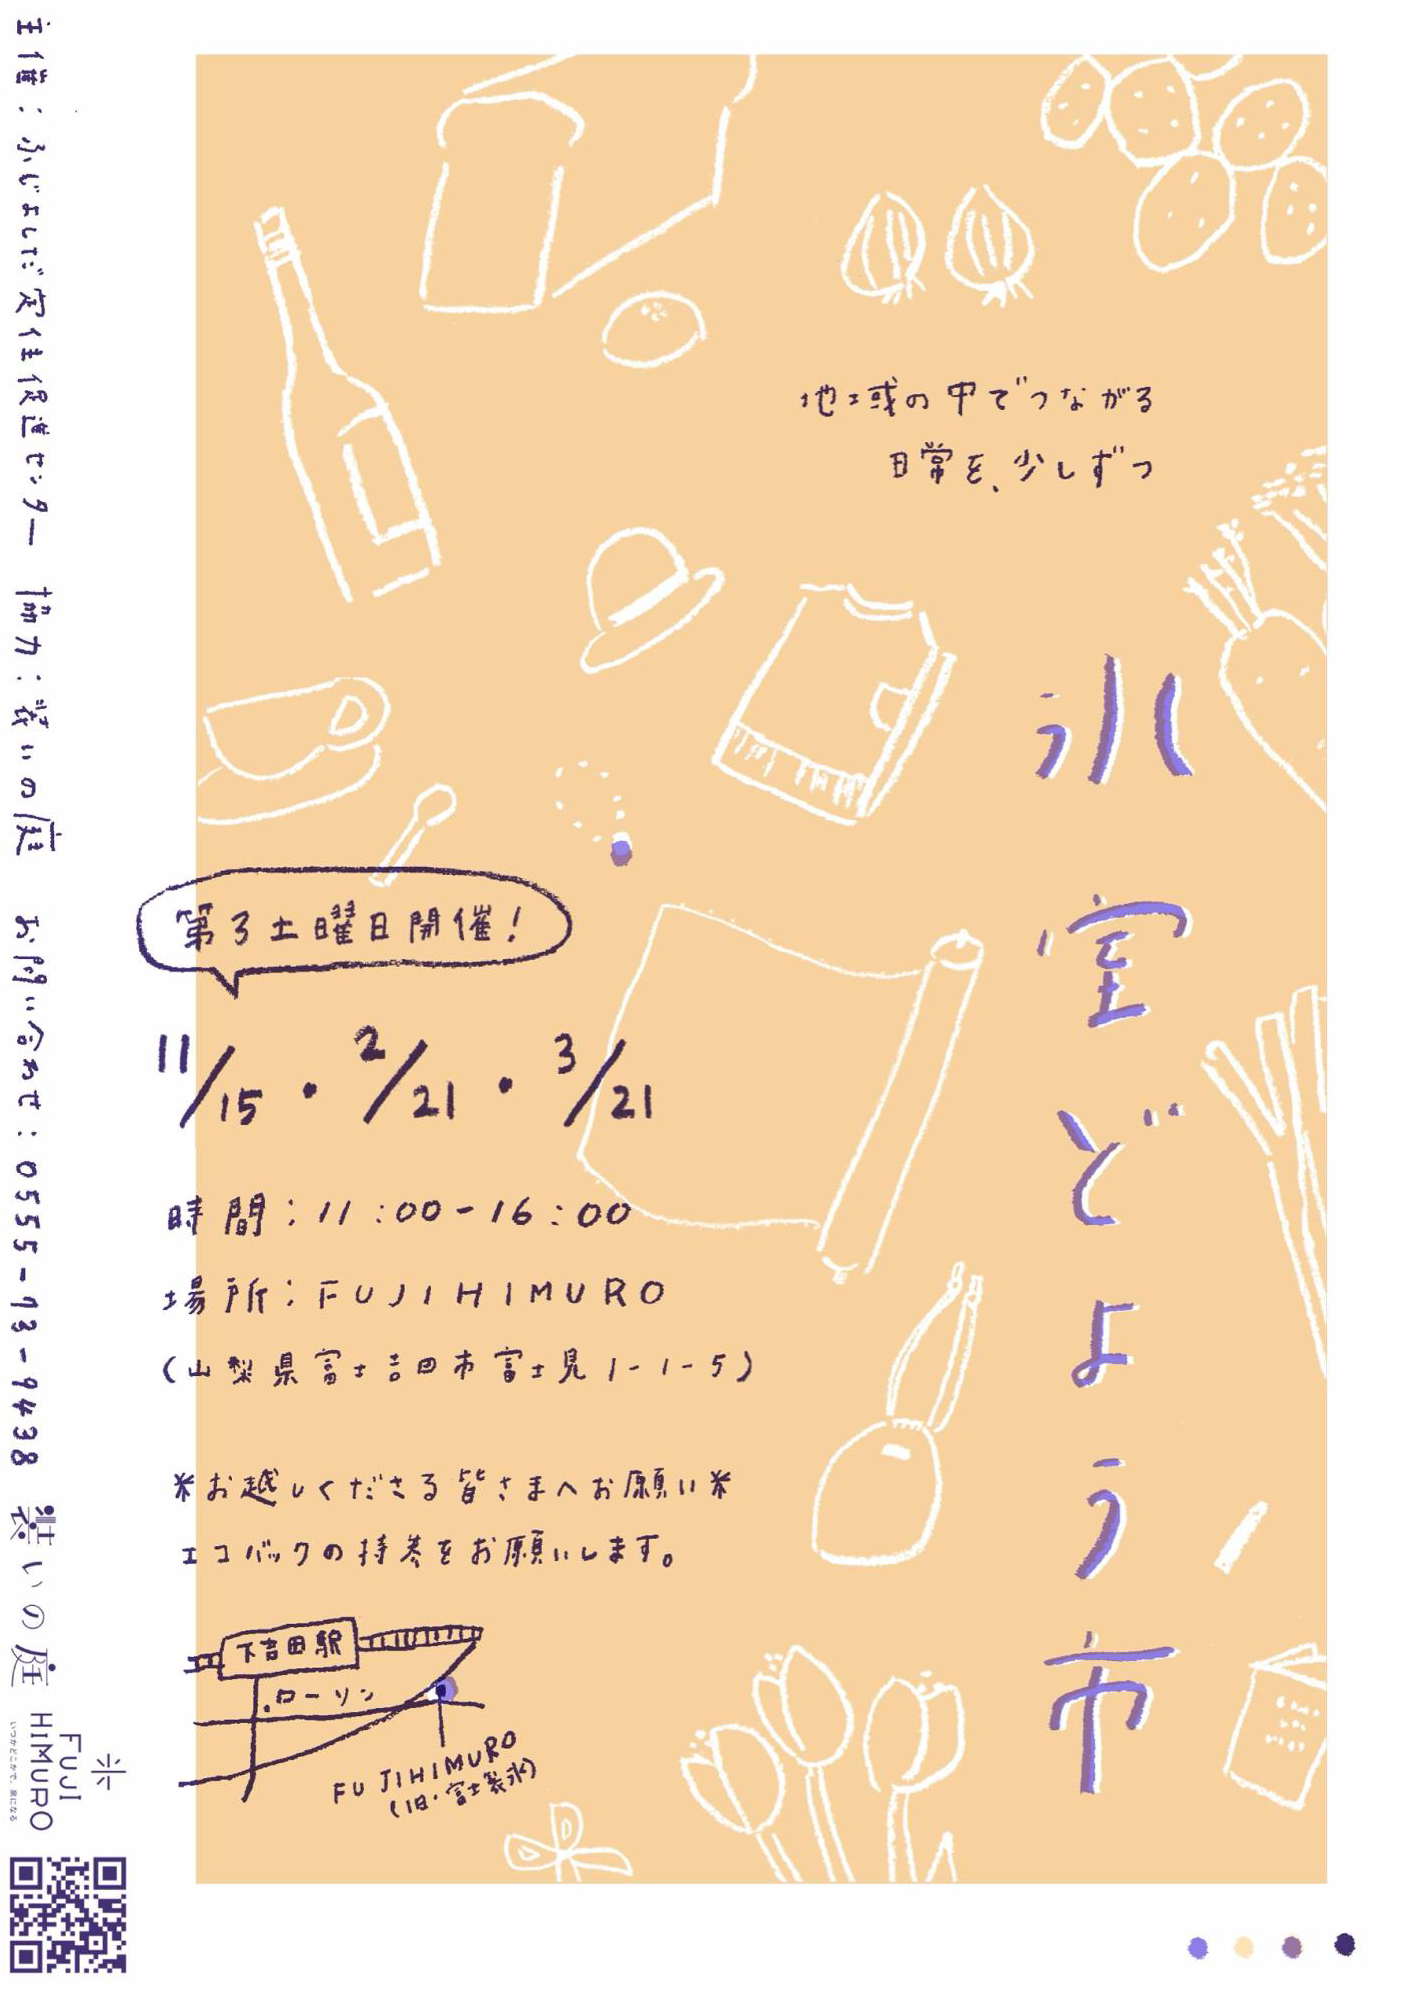 地域の中でつながる
日常を、少しずつ
氷室どよう市
第3土曜日開催!
11/15・2/21・3/21
時間:11:00-16:00
場所:FUJIHIMURO
(山梨県富士吉田市富士見1-1-5)
*お越しくださる皆さまへお願い*
エコバックの持参をお願いします。
下吉田駅
ローソン
FUJIHIMURO
(旧・富士製氷)
主催:ふじよしだ定住促進センター 協力:装いの庭 お問い合わせ:0555-73-9438
装いの庭
FUJI
HIMURO
いつかどこかで、泉になる